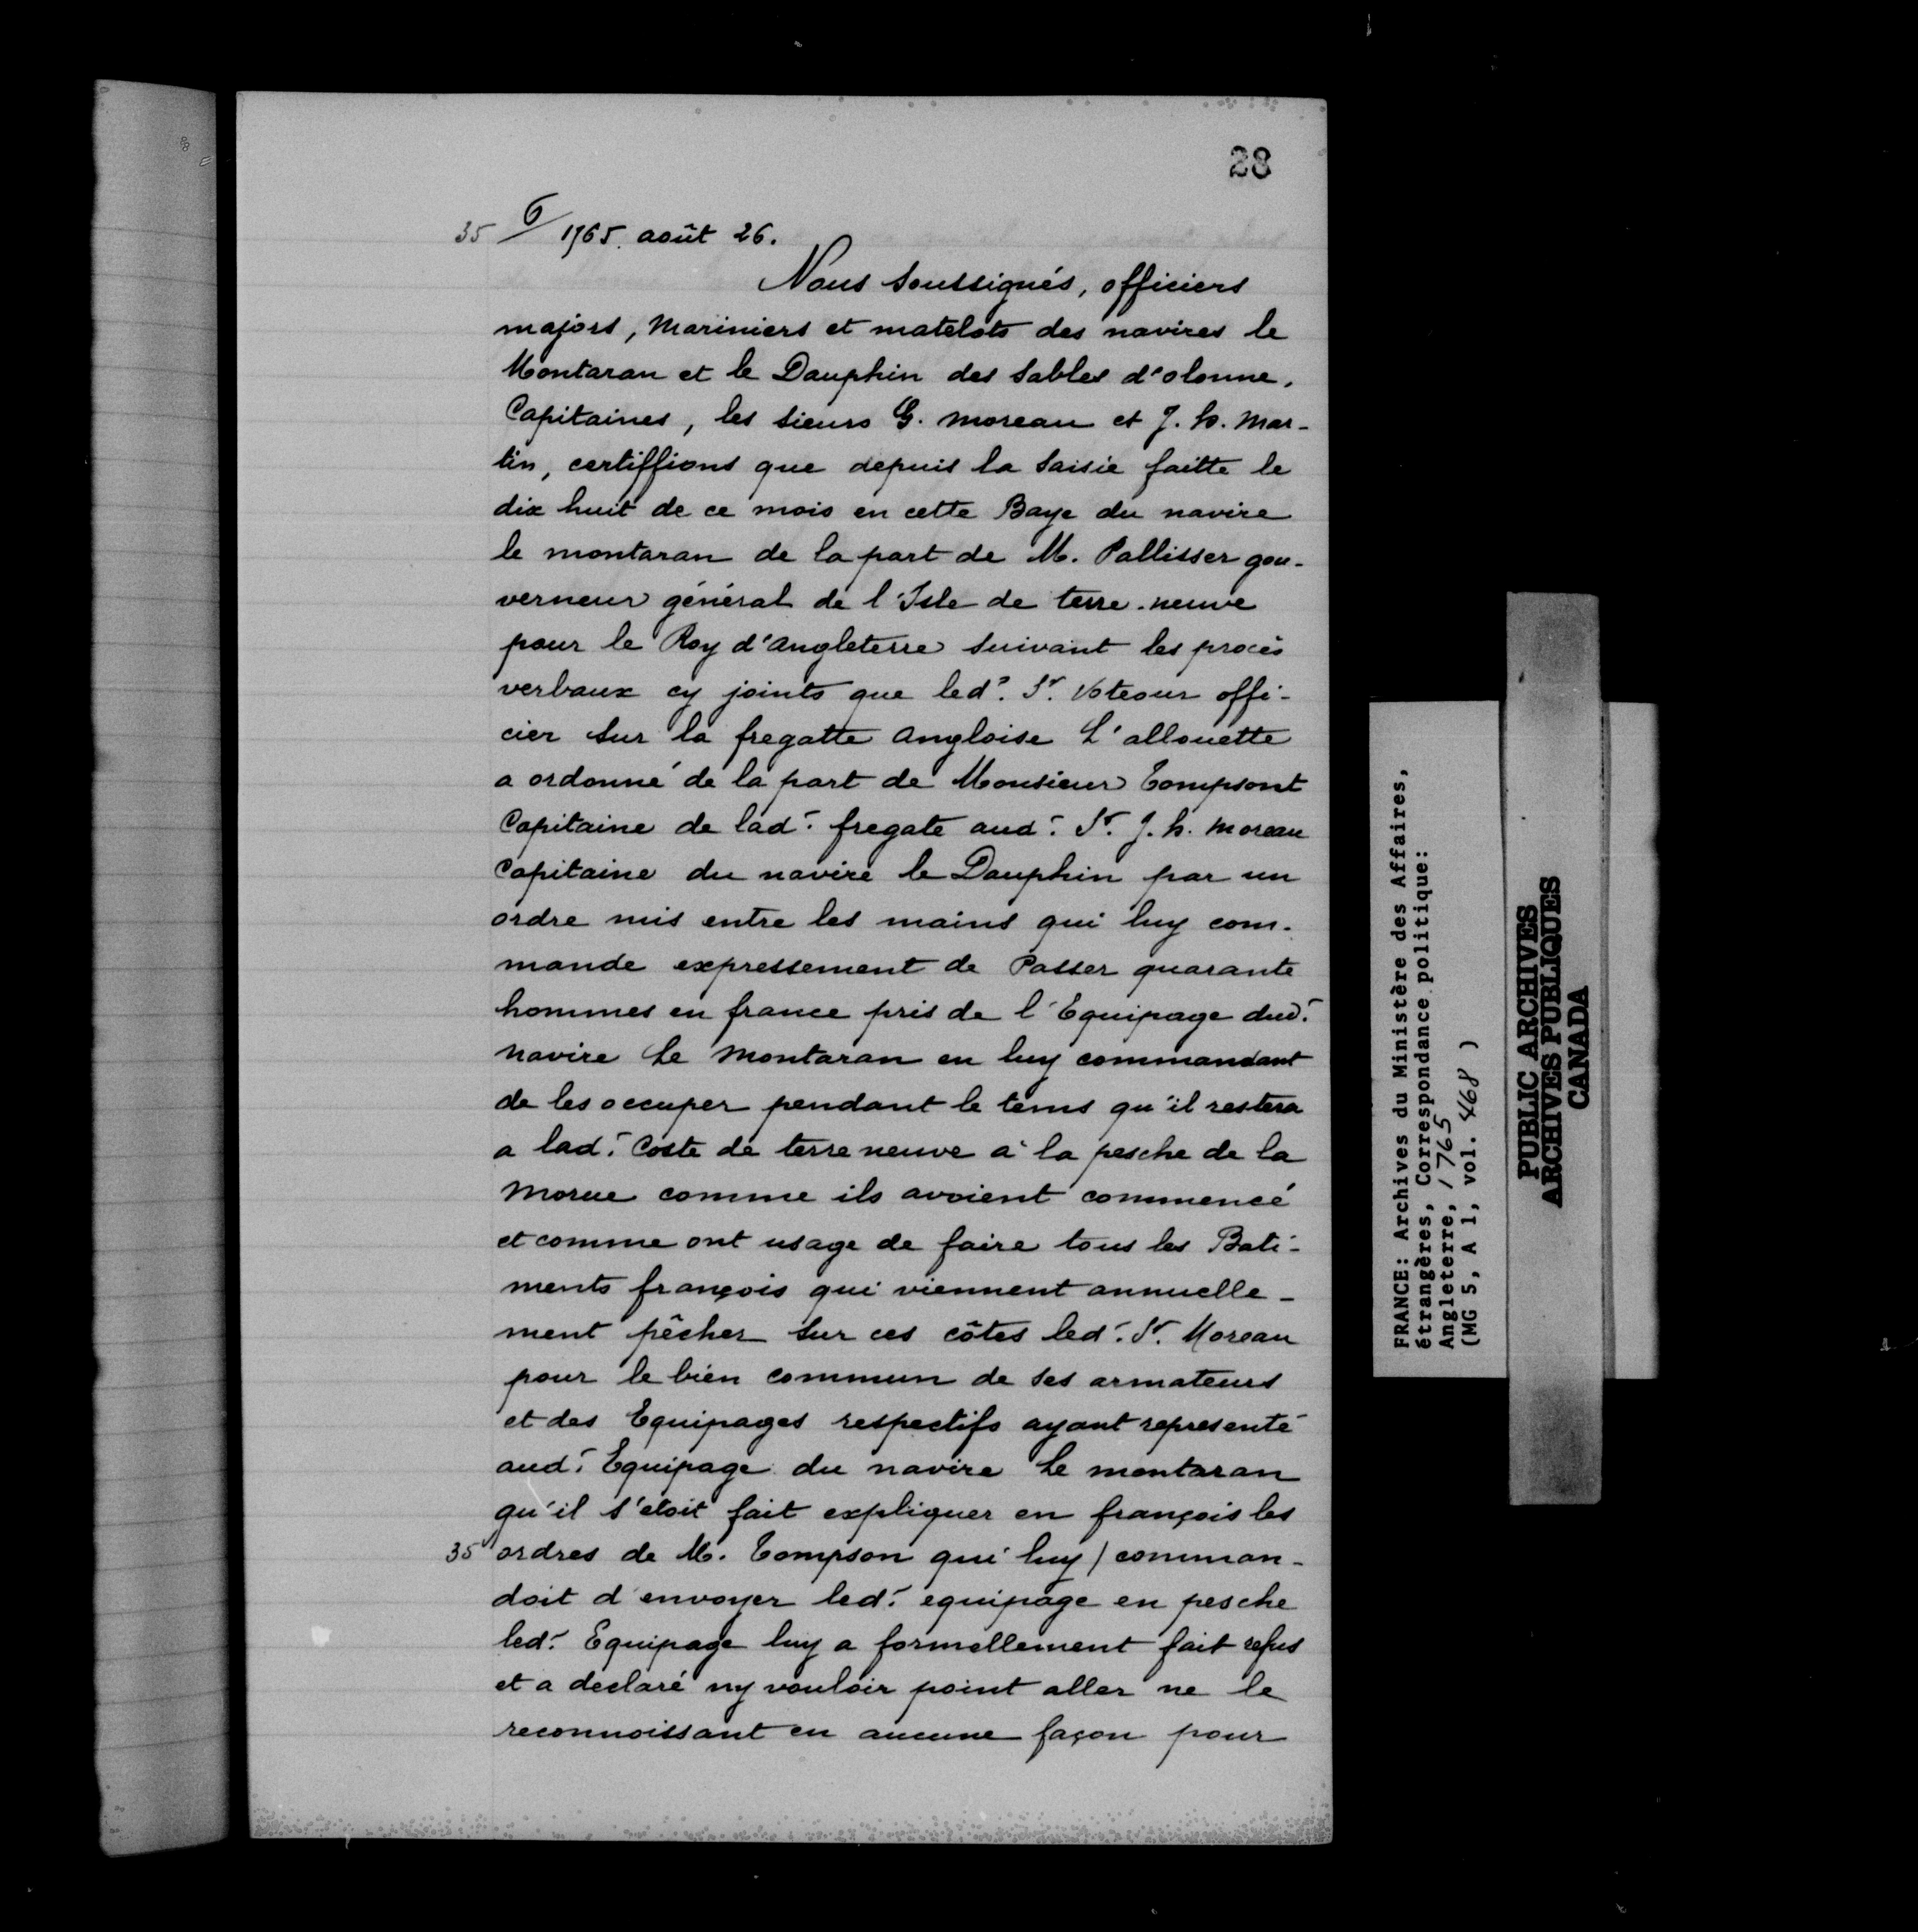 28
35 6/ 1765. août 26.
Nous soussignés, officiers
majors, Mariniers et matelots des navires le
Montaran et le Dauphin des Sables d'olonne.
Capitaines, les sieurs G. Moreau et J. h. Mar-
tin, certiffions que depuis la Saisie faitte le
dix huit de ce mois en cette Baye du navire
le montaran de la part de M. Pallisser gou-
verneur général de l'Isle de terre-neuve
pour le Roy d'Angleterre suivant les procès
verbaux cy joints que led. Sr. Voteour offi-
cier sur la fregatte angloise L'allouette
a ordonné de la part de Monsieur Tompsont
Capitaine de lad. fregate aud. Sr. J. h. Moreau
Capitaine du navire le Dauphin par un
ordre mis entre les mains qui luy com-
mande expressement de Passer quarante
hommes en france pris de l'Equipage dud.
navire Le Montaran en luy commandant
de les occuper pendant le tems qu'il restera
a lad. Coste de terre neuve à la pesche de la
Morue comme ils avoient commencé
et comme ont usage de faire tous les Bati-
ments françois qui viennent annuelle-
ment pêcher sur ces côtes led. Sr. Moreau
pour le bien commun de ses armateurs
et des Equipages respectifs ayant representé
aud. Equipage du navire Le montaran
qu'il s'etoit fait expliquer en françois les
35 ordres de M. Tompson qui luy / comman-
doit d'envoyer led. equipage en pesche
led. Equipage luy a formellement fait refus
et a déclaré ny vouloir point aller ne le
reconnoissant en aucune façon pour
FRANCE: Archives du Ministère des Affaires,
étrangères, Correspondance politique:
Angleterre, 1765
(MG 5, A 1, vol. 468 )
PUBLIC ARCHIVES
ARCHIVES PUBLIQUES
CANADA